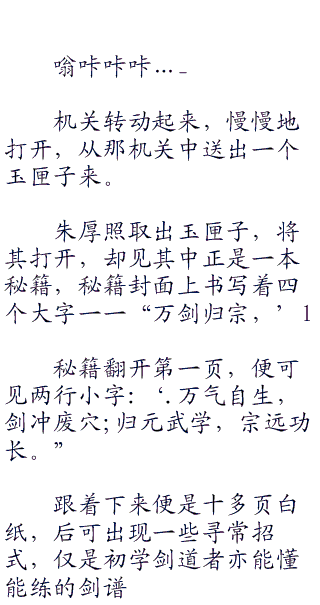 嗡咔咔咔…_
机关转动起来，慢慢地
打开，从那机关中送出一个
玉匣子来。
朱厚照取出玉匣子，将
其打开，却见其中正是一本
秘籍，秘籍封面上书写着四
个大字一一“万剑归宗，’1
秘籍翻开第一页，便可
见两行小字：‘.万气自生，
剑冲废穴;归元武学，宗远功
长。”
跟着下来便是十多页白
纸，后可出现一些寻常招
式，仅是初学剑道者亦能懂
能练的剑谱